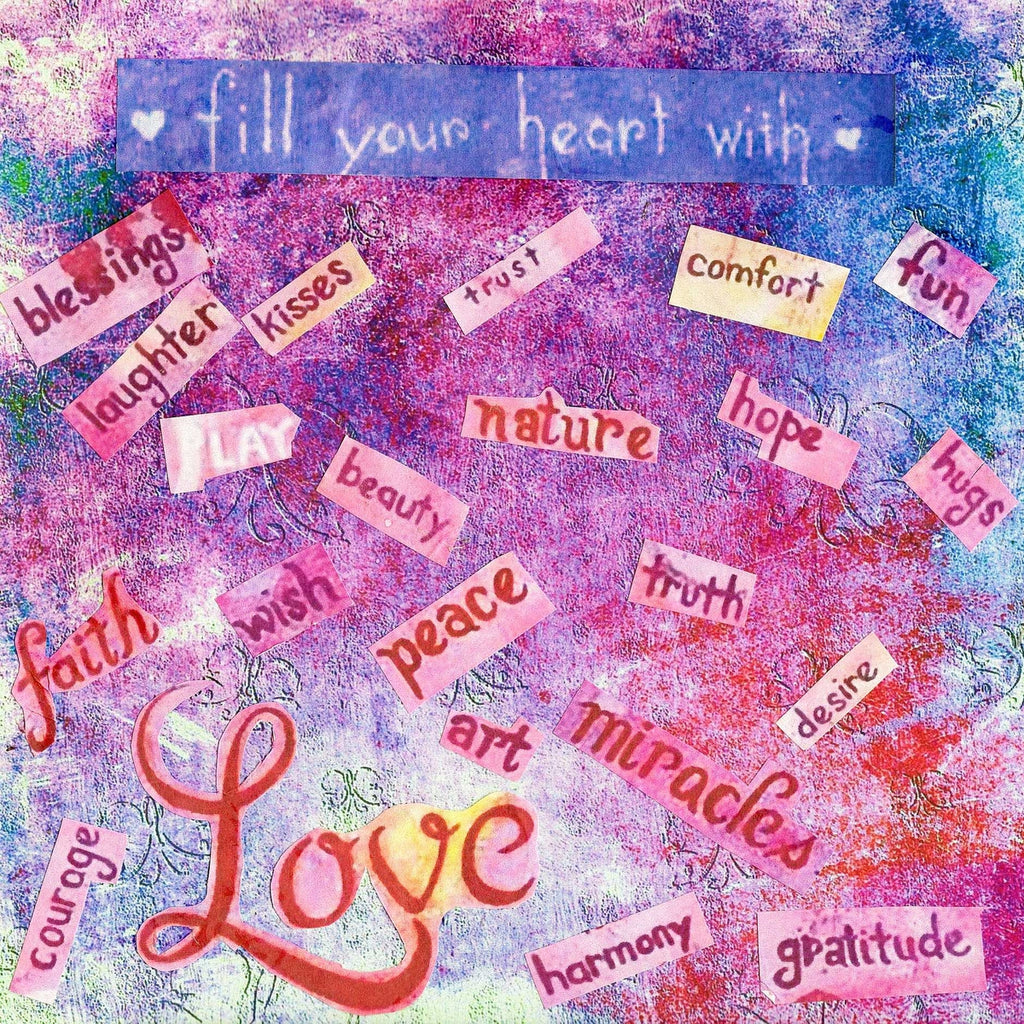 fill your heart with
blessings
kisses
trust
comfort
fun
laughter
PLAY
nature
hope
beauty
hugs
wish
peace
truth
faith
desire
art
miracles
Love
courage
harmony
gratitude